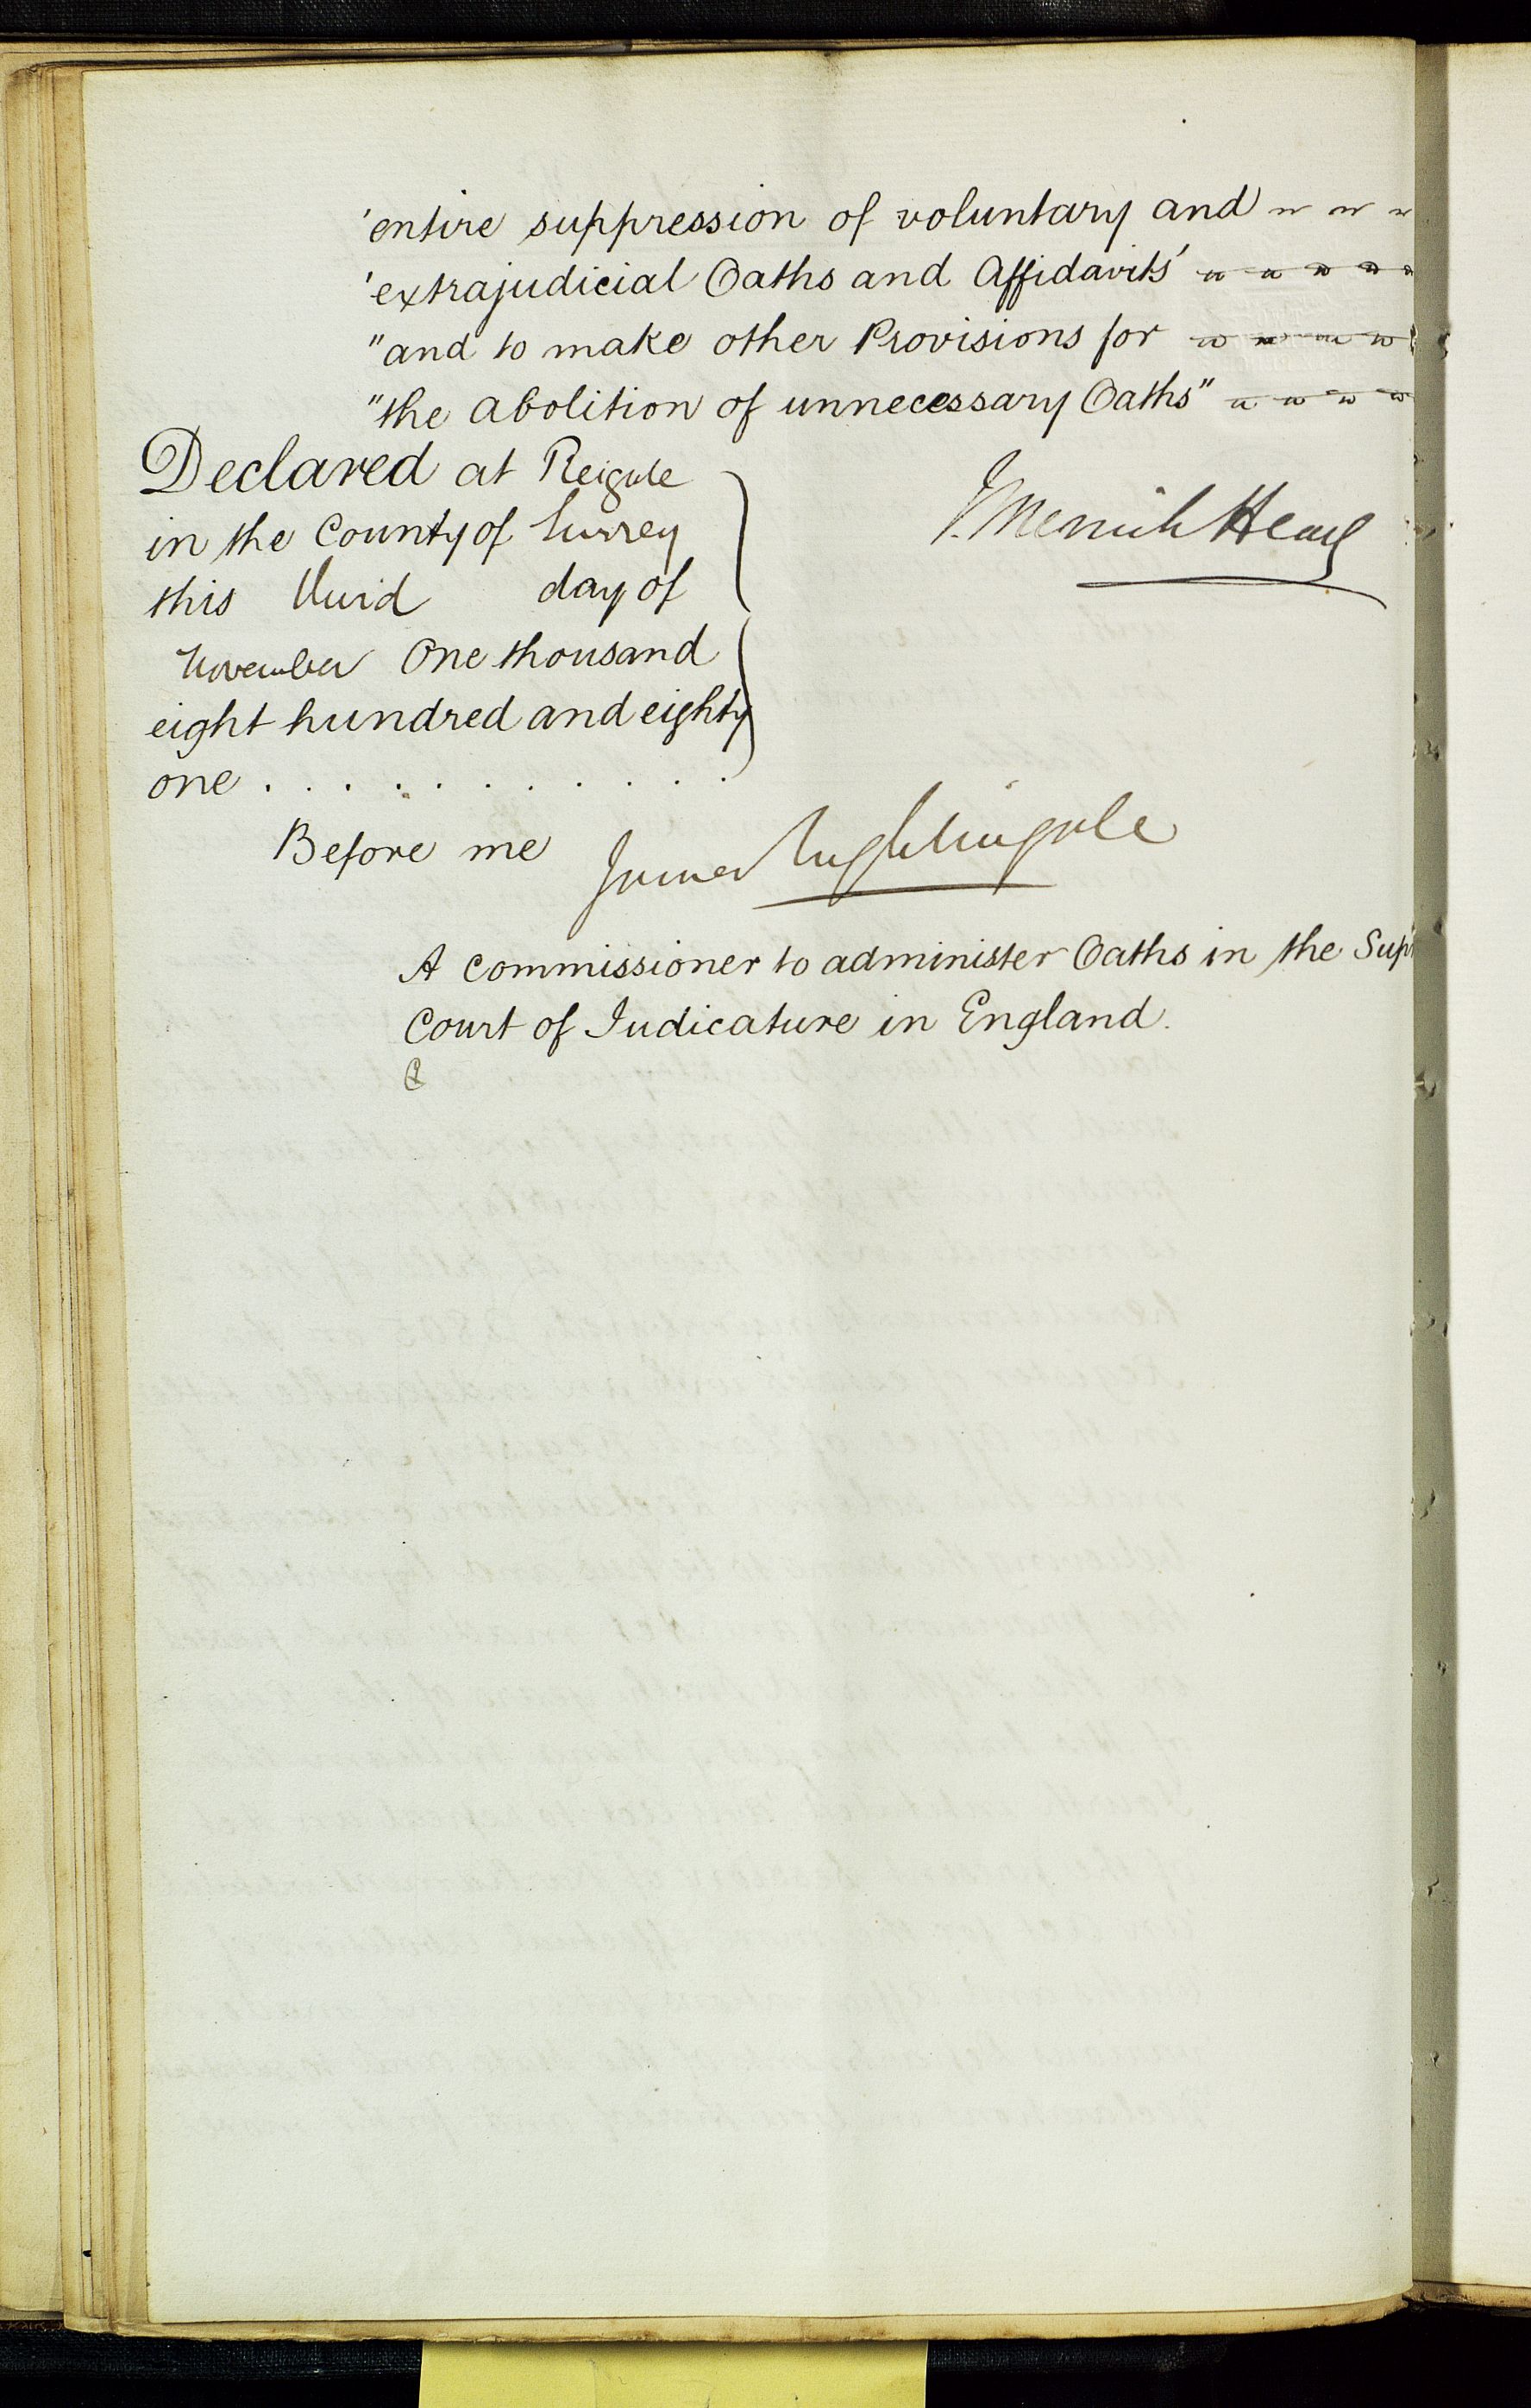 'entire suppression of voluntary and
'extrajudicial Oaths and Affidavits'
"and to make other Provisions for
"the abolition of unnecessary Oaths"
Declared at Reigate
in the County of Surrey
this third day of
November One thousand
eight hundred and eighty
one . . . . . . . . . . .
J. Merrick Head
Before me James Nightingale
A Commissioner to administer Oaths in the
Court of Judicature in England.